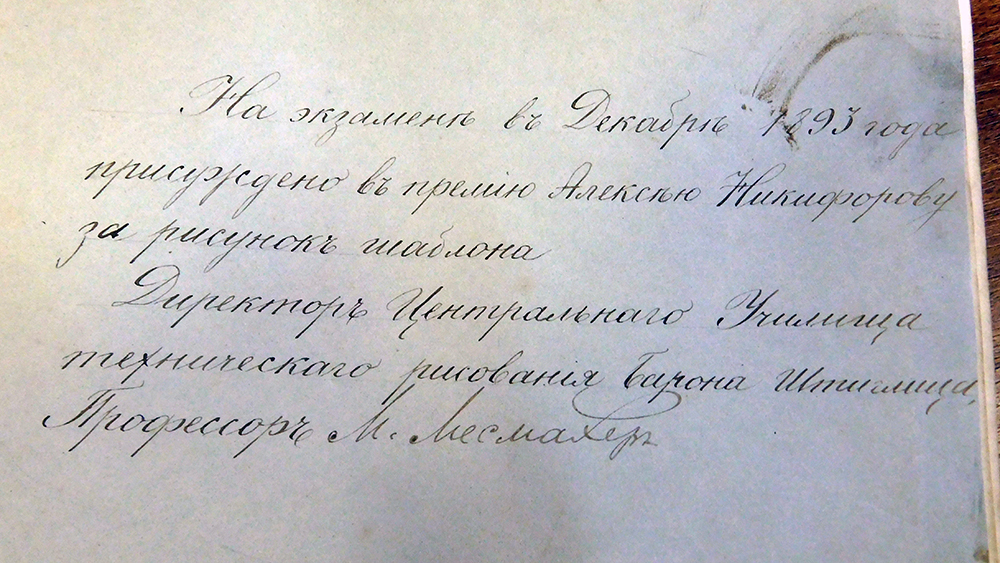 На экзаменѣ въ Декабрѣ 1893 года
присуждено въ премію Алексѣю Никифорову
за рисунокъ шаблона
Директоръ Центральнаго Училища
техническаго рисованія Барона Штиглица,
Профессоръ М. Месмахеръ